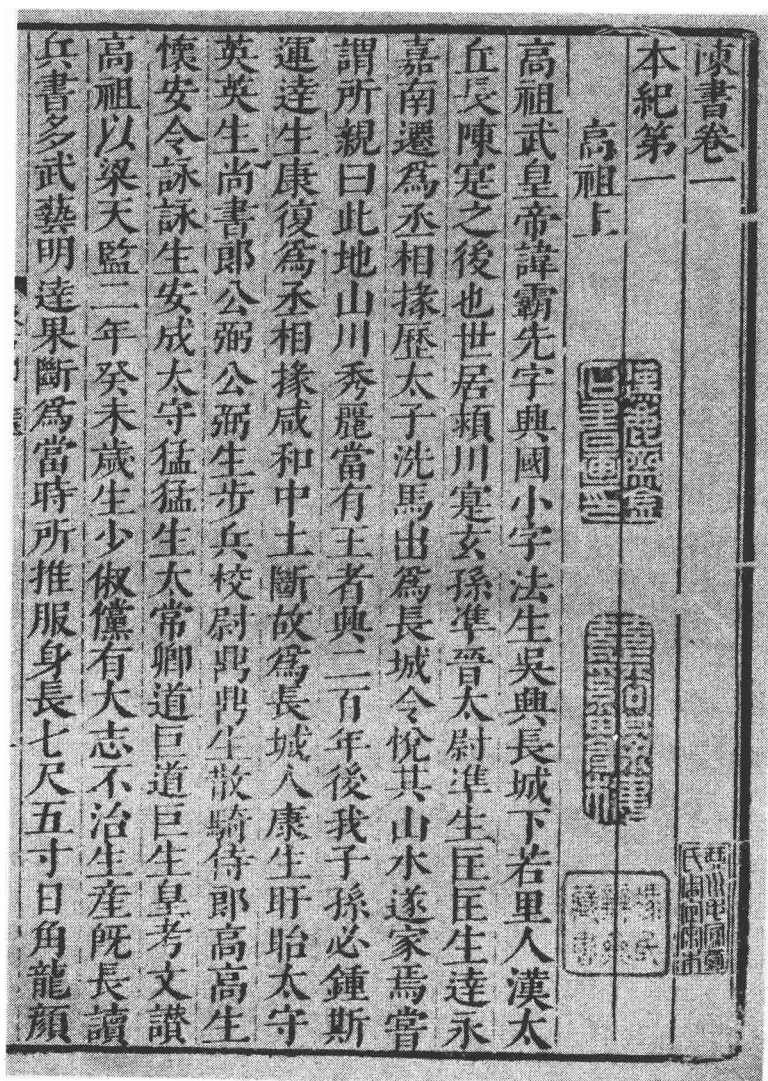 陳書卷一
本紀第一
高祖上
高祖武皇帝諱霸先字興國小字法生吳興長城下若里人漢太
丘長陳寔之後也世居潁川寔玄孫準晉太尉準生匡匡生達永
嘉南遷爲丞相掾歷太子洗馬出爲長城令悅其山水遂家焉嘗
謂所親曰此地山川秀麗當有王者興二百年後我子孫必鍾斯
運達生康復爲丞相掾咸和中土斷故爲長城人康生盱眙太守
英英生尚書郎公弼公弼生步兵校尉鼎鼎生散騎侍郎高高生
懷安令詠詠生安成太守猛猛生太常卿道巨道巨生皇考文讃
高祖以梁天監二年癸未歲生少俶儻有大志不治生産旣長讀
兵書多武藝明達果斷爲當時所推服身長七尺五寸日角龍顔